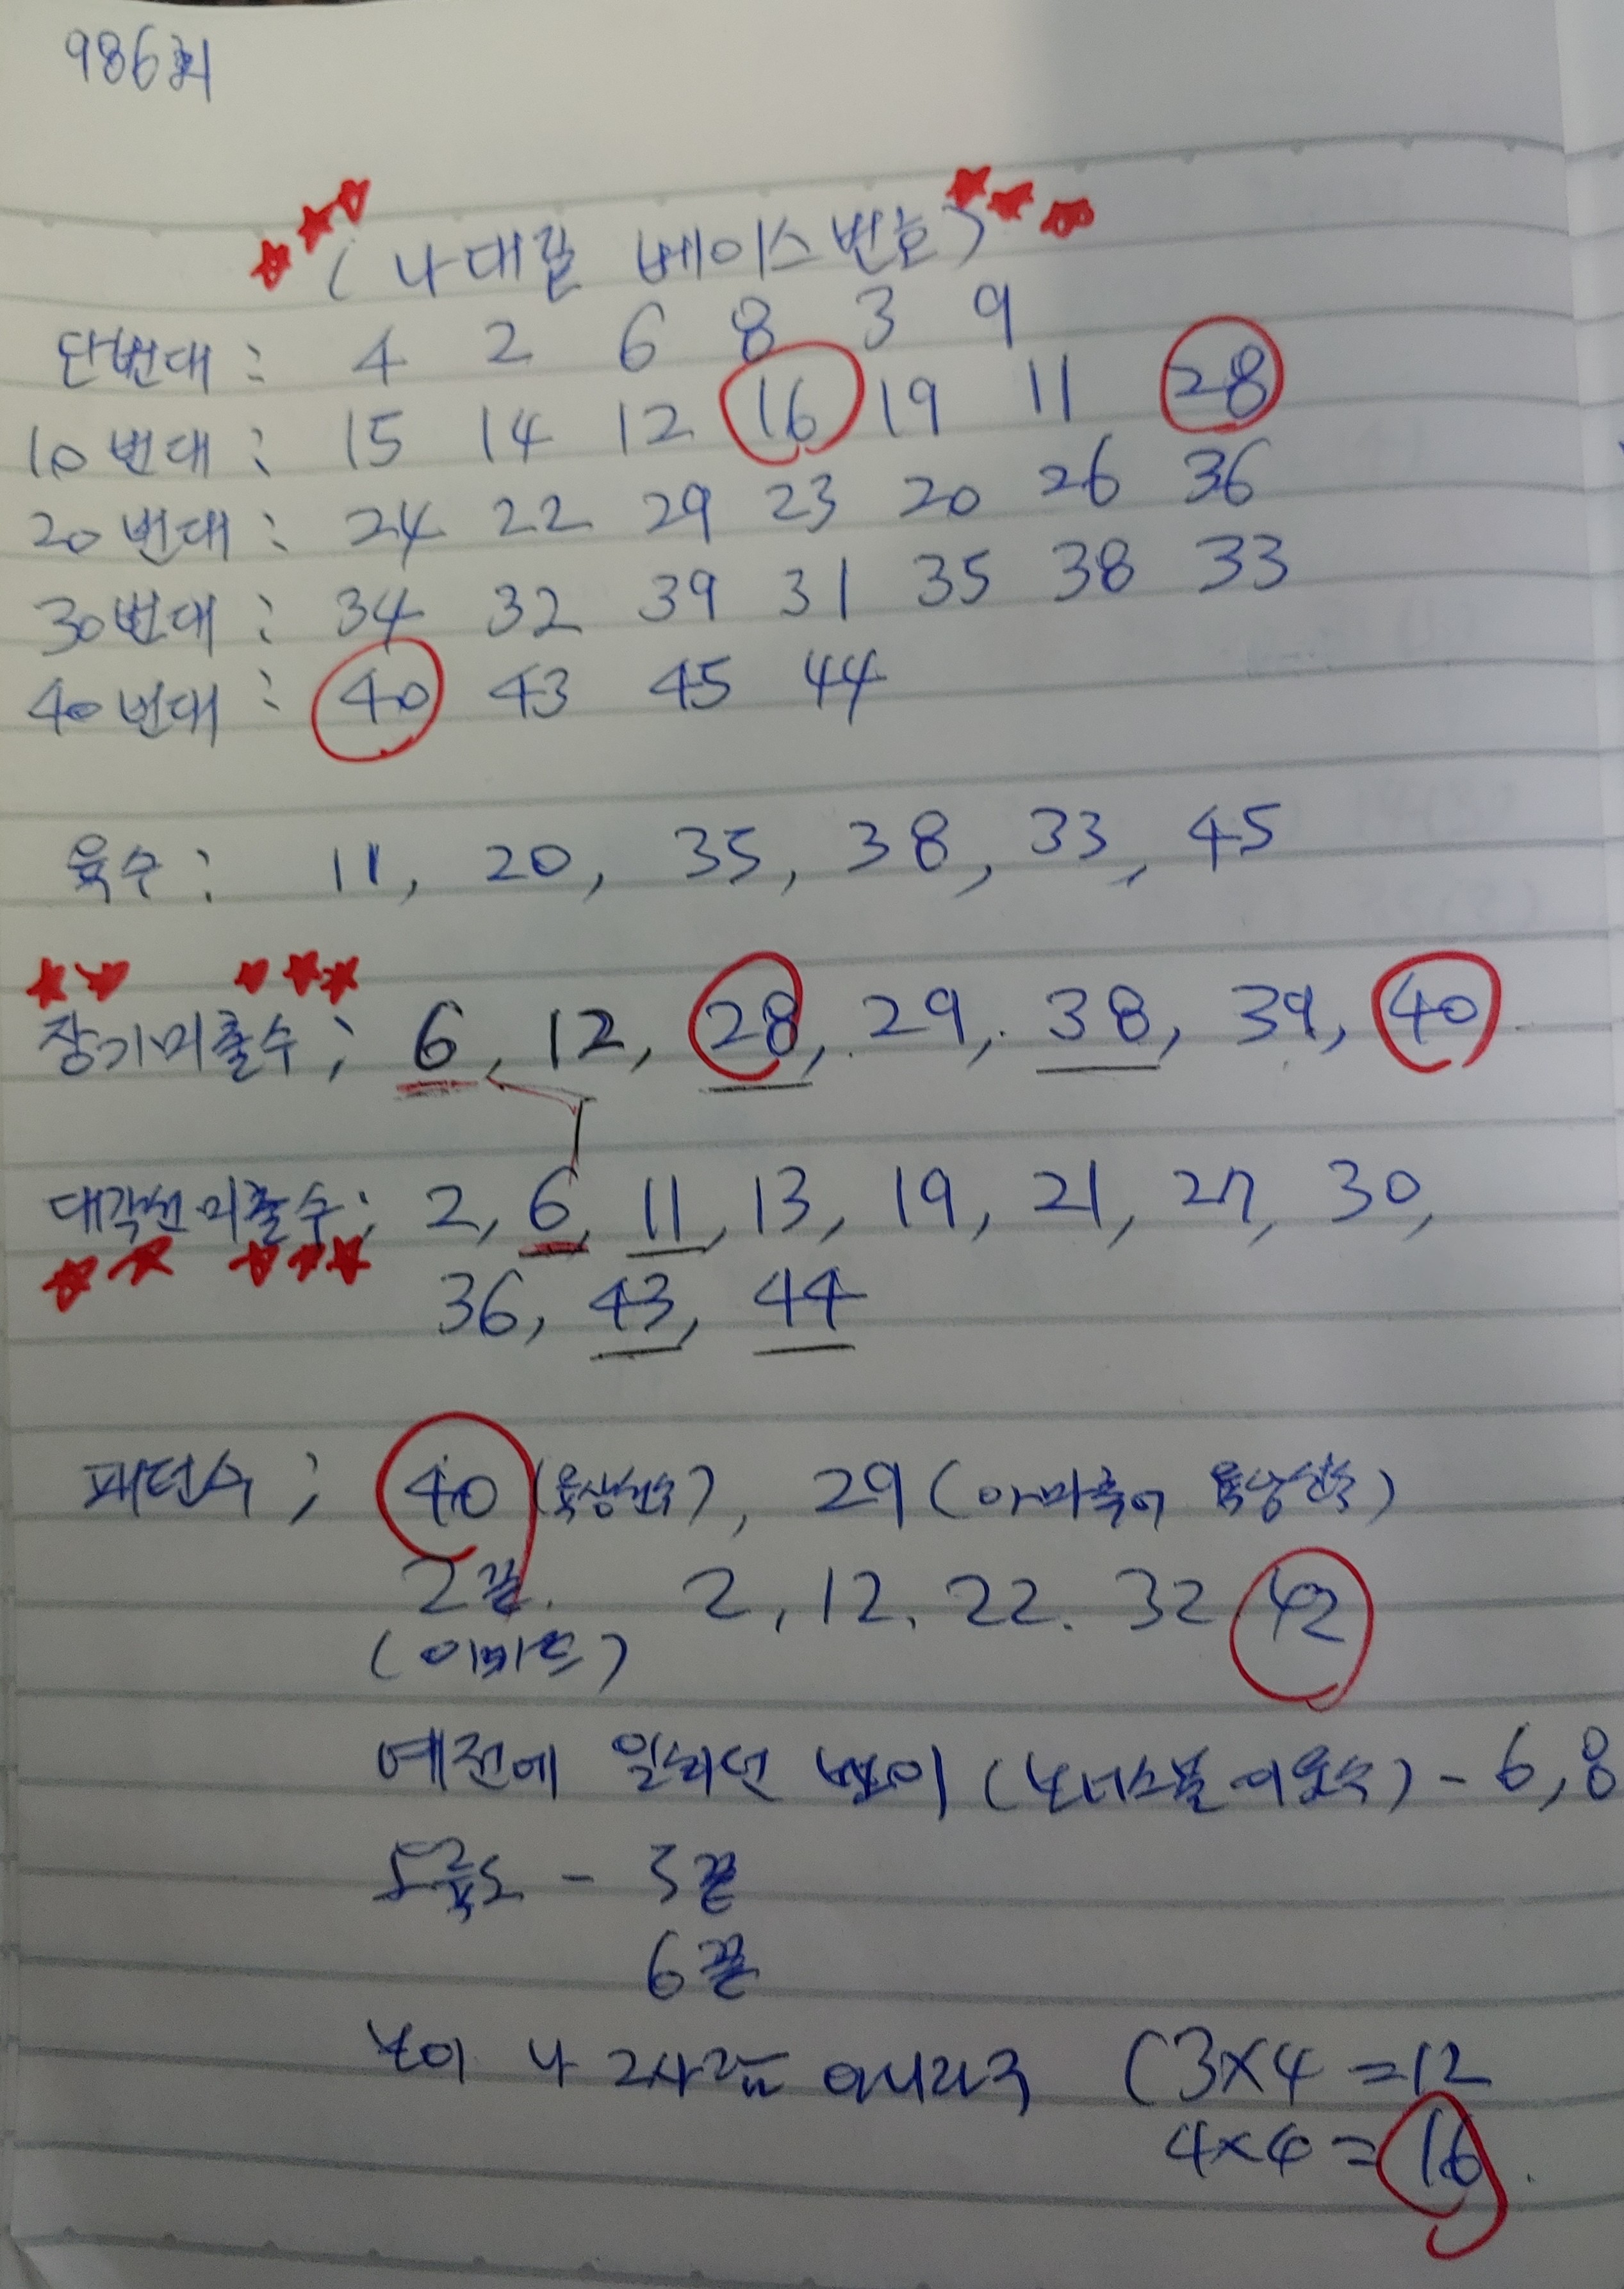 986회
(나대길 베이스번호)
단번대 : 4 2 6 8 3 9
10번대 : 15 14 12 16 19 11 28
20번대 : 24 22 29 23 20 26 36
30번대 : 34 32 39 31 35 38 33
40번대 : 40 43 45 44
육수 : 11, 20, 35, 38, 33, 45
장기미출수 ; 6, 12, 28, 29, 38, 39, 40
대각선미출수 ; 2, 6, 11, 13, 19, 21, 27, 30,
36, 43, 44
패턴수 ; 40 (육상선수), 29 (
2끝. 2, 12. 22. 32 42
예전에 일하던 (보너스볼 이웃수) - 6, 8
- 3끝
6끝
(3×4 = 12
4×4 = 16